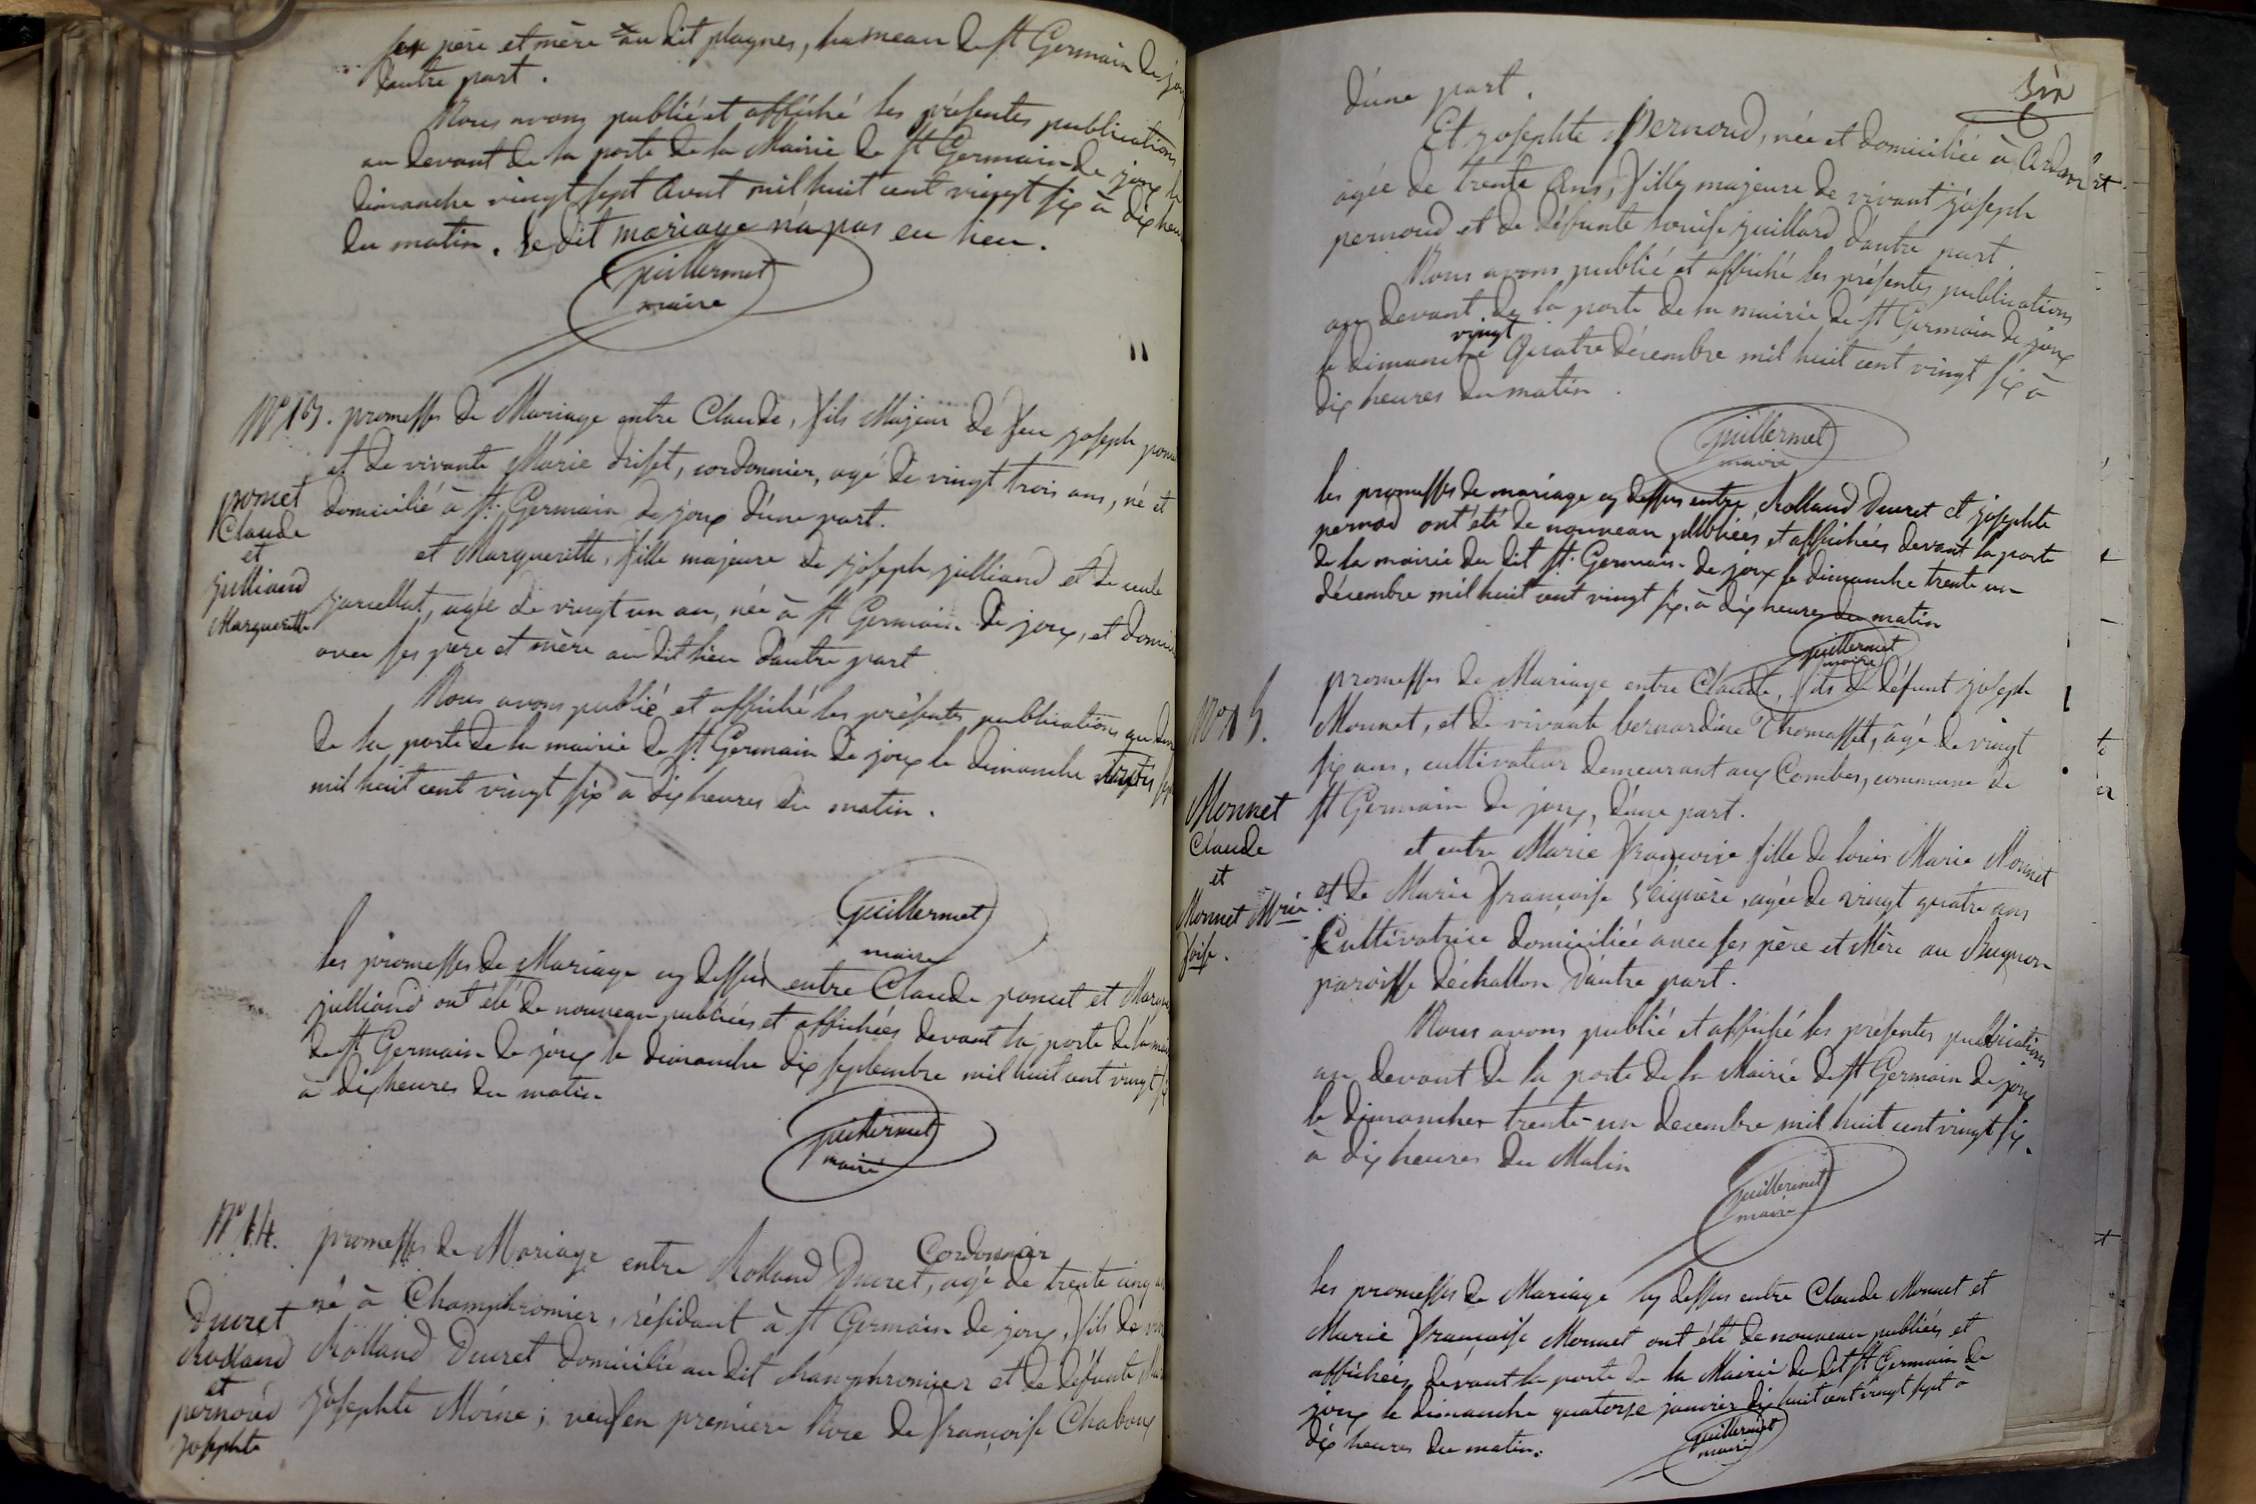 ses père et mère au dit plagnes, hameau de St Germain de joux
d'autre part.
Nous avons publié et affiché les présentes publications
au devant de la porte de la Mairie de St Germain de joux le
dimanche vingt sept Aout mil huit cent vingt six à dix heures
du matin. Le dit mariage n'a pas eu lieu.
Guillermet
maire
N° 13. promesses de Mariage entre Claude, fils Majeur de feu joseph poncet
et de vivante Marie, cordonnier, agé de vingt trois ans, né et
domicilié à St Germain de joux d'une part.
poncet
Claude
et
julliand
Margueritte
et Margueritte, fille majeure de joseph julliand et de
agée de vingt un an, née à St Germain de joux, et
avec ses père et mère au dit lieu d'autre part
Nous avons publié et affiché les présentes publications
de la porte de la mairie de St Germain de joux le dimanche
mil huit cent vingt six à dix heures du matin.
Guillermet
maire
les promesses de Mariage cy dessus entre Claude poncet et
julliand ont été de nouveau publiées et affichées devant la porte de la
de St Germain de joux le dimanche dix septembre mil huit cent vingt six
à dix heures du matin
Guillermet
maire
N° 14. promesses de Mariage entre Rolland Ducret, Cordonnier agé de trente cinq
né à Champfromier, résidant à St Germain de joux, fils de
Rolland Ducret domicilié au dit champfromier et de défunte
josephte Moine; veuf en premiere Noce de françoise Chaboux
Ducret
Rolland
et
pernoud
josephte
Six
d'une part.
Et josephte Pernoud, née et domiciliée à
agée de trente ans, fille majeure de vivant joseph
pernoud et de défunte louise juillard d'autre part
Nous avons publié et affiché les présentes publications
au devant de la porte de la mairie de St Germain de joux
le dimanche vingt Quatre décembre mil huit cent vingt six à
dix heures du matin.
Guillermet
maire
les promesses de mariage cy dessus entre Rolland Ducret et josephte
pernod ont été de nouveau publiées et affichées devant la porte
de la mairie du dit St Germain de joux le dimanche trente un
décembre mil huit cent vingt six à dix heures du matin
Guillermet
maire
N° 15.
promesses de Mariage entre Claude, fils de défunt joseph
Monnet, et de vivante bernardine Thomasset, agé de vingt
six ans, cultivateur demeurant aux Combes, commune de
St Germain de joux, d'une part.
Monnet
Claude
et
Monnet Mrie
foise.
et entre Marie françoise fille de louis Marie Monnet
et de Marie françoise Seignère, agée de vingt quatre ans
Cultivatrice domiciliée avec ses père et Mère au Bugnon
paroisse d'échallon d'autre part.
Nous avons publié et affiché les présentes publications
au devant de la porte de la Mairie de St Germain de joux
le dimanche trente-un decembre mil huit cent vingt six.
à dix heures du Matin
Guillermet
maire
les promesses de Mariage cy dessus entre Claude Monnet et
Marie françoise Monnet ont été de nouveau publiées et
affichées devant la porte de la Mairie du dit St Germain de
joux le dimanche quatorze janvier dix huit cent vingt sept à
dix heures du matin.
Guillermet
maire